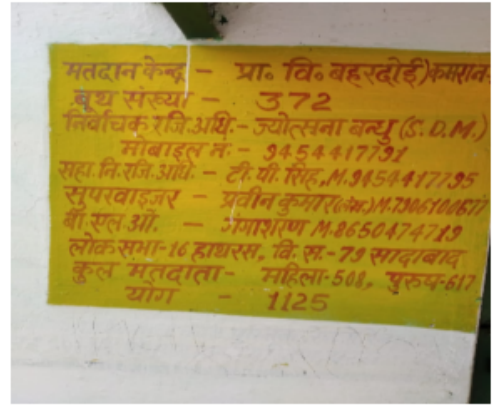 मतदान केन्द्र - प्रा० वि० बहरदोई)कमरान-
बूथ संख्या - 372
निर्वाचक रजि.अधि.- ज्योत्सना बन्धु (S.D.M.)
मोबाइल नं.- 9454417791
सहा.नि.रजि.अधि.- टी.पी. सिंह,M.9454417795
सुपरवाइजर - प्रवीन कुमार(लेख.)M.7906100677
बी.एल.ओ. - गंगाशरण M.8650474719
लोक सभा-16 हाथरस, वि.स.- 79 सादाबाद
कुल मतदाता- महिला-508, पुरुष-617
योग - 1125